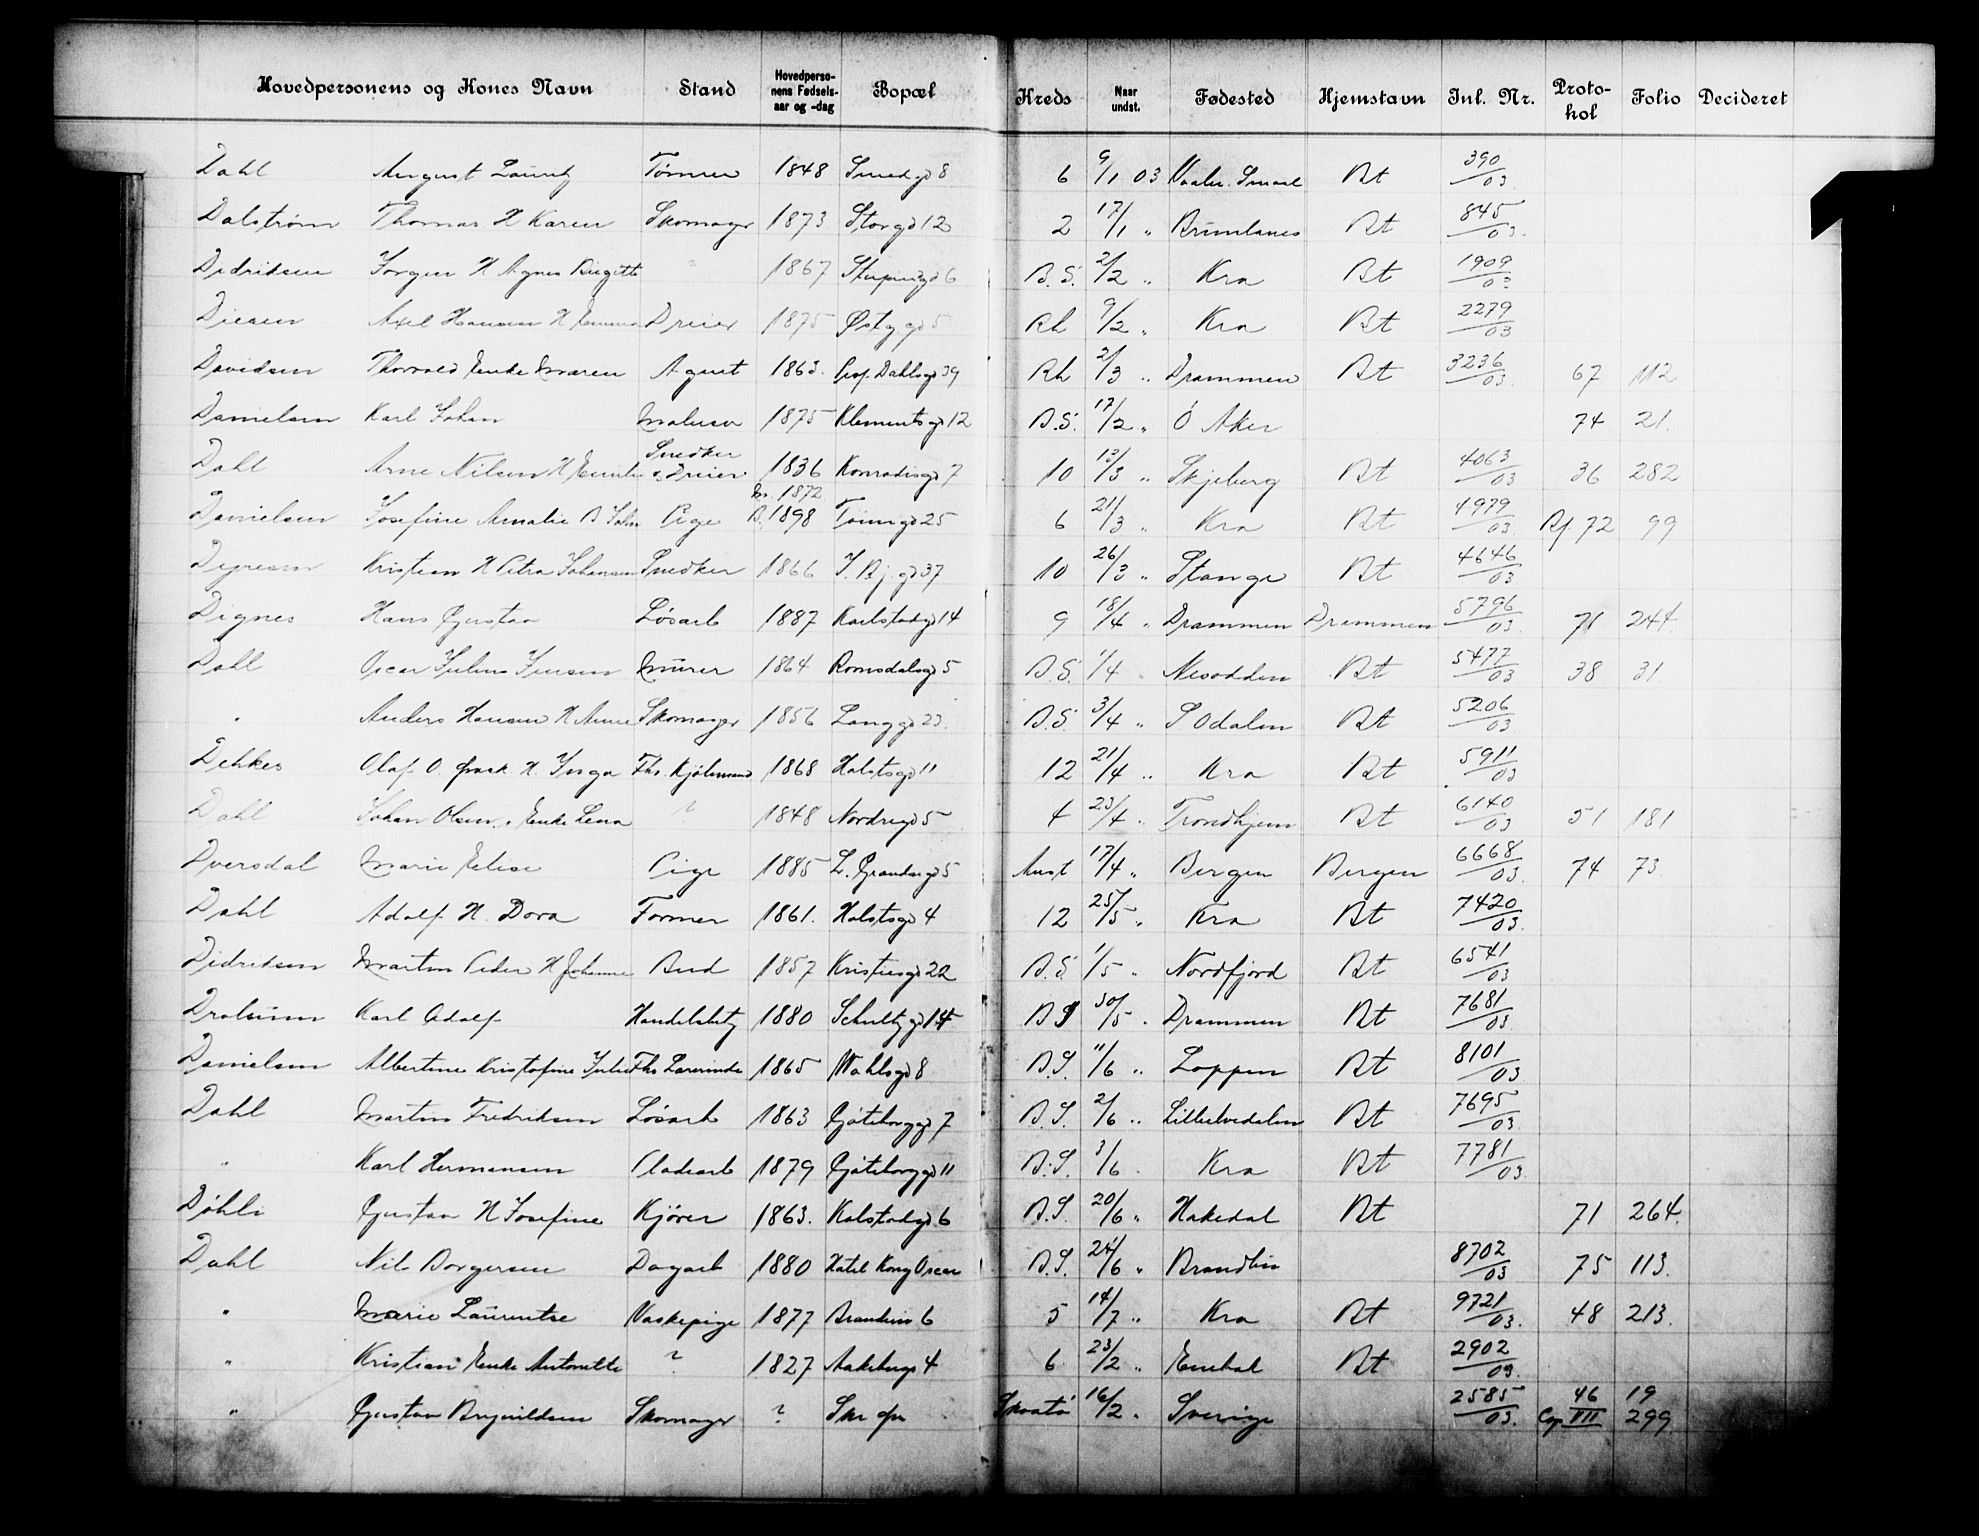 Hovedpersonens og Kones Navn Stand Hovedpersonens Fødselsaar og -dag Bopæl Kreds Naar undst. Fødested Hjemstavn Inl. Nr. Protokol Folio Decideret
Dahl August Lauritz Tømmer 1848 Smedgd 8 6 9/1 03 Vaaler. Smaal Bt 390/03.
Dalstrøm Thomas H Karen Skomager 1873 Storgd 12 2 17/1 " Brunlanes Bt 845/03.
Didriksen Jørgen H Agnes Birgitte ? 1867 6 B.S. 2/2 " Kra Bt 1909/03
Diesen Axel Hansen H Emma Dreier 1875 Østbygd 5 Rh 9/2 " Kra Bt 2279/03
Davidsen Thorvald Enke Maren Agent 1863. Prof. Dahlsgd 39 Rh 2/3 " Drammen Bt 3236/03. 67 112
Danielsen Karl Johan Malersv 1875 Klementsgd 12 B.S. 17/2 " Ø Aker 74 21.
Dahl Arne Nilsen H Emilie Snedker & Dreier 1836 Konradisgd 7 10 13/3 " Skjeberg Bt 4063/03 36 282
Danielsen Josefine Amalie B John Pige M. 1872 B. 1898 Tøiengd 25 6 21/3 " Kra Bt 4979/03. Rf. 72 99
Kristian H Petra Johansen Snedker 1866 J. Bj. gd 37 10 26/3 " Stange Bt 4646/03
Dignes Hans Gustav Løsarb 1887 Karlstadgd 14 9 18/4 " Drammen Drammen 5796/03. 71 244.
Dahl Oscar Julius Jensen Murer 1864 Romsdalsgd 5 B.S. 1/4 " Nesodden Bt 5477/03 38 31.
" Anders Hansen H Anne Skomager 1856 Langgd 23. B.S. 3/4 " S Odalen Bt 5206/03
Dehkes Olaf O. H. Inga Fhv. Kjølmand 1868 Holstsgd 11 12 21/4 " Kra Bt 5911/03
Dahl Johan Olsen. Enke Lena ? 1848 Nordregd 5 4 23/4 " Trondhjem Bt 6140/03 51 181
Dversdal Marie Elise Pige 1885 L. Grændsegd 5 Anst 17/4 " Bergen Bergen 6668/03. 74 73.
Dahl Adolf H. Dora Former 1861. Holstsgd 4 12 25/5 " Kra Bt 7420/03.
Didriksen Martin Peder H Johanne Bud 1857 Kristiesgd 22 B.S 1/5 " Nordfjord Bt 6541/03
Karl Adolf Handelsbetj 1880 Schultzgd 14 B S 30/5 " Drammen Bt 7681/03
Danielsen Albertine Kristofine Julie Fhv Lærerinde 1865 Wahlsgd 8 B.S. 11/6 " Loppen Bt 8101/03
Dahl Martin Fredriksen Løsarb 1863 Gøteborggd 7 B.S. 2/6 " Lilleelvedalen Bt 7695/03.
" Karl Hermansen Pladearb 1879 Gøteborggd 11 B.S. 3/6 Kra Bt 7781/03.
Døhli Gustav H Josefine Kjører 1863. Kalstadgd. 6 B.S. 20/6 " Hakedal Bt 71 264.
Dahl Nils Borgersen Dagarb 1880 Hotel Kong Oscar B.S. 24/6 " Brandbu 8702/03 75 113.
" Marie Laurentse Vaskepige 1877 6 5 14/7 " Kra Bt 9721/03. 48 213.
" Kristian Enke Antonette ? 1827 Aakebergv 4 6 23/2 " Enebak Bt 2902/03.
" Gustav Skomager ? 16/2 " Sverige 2585/03. 46 19 Cop VII 299